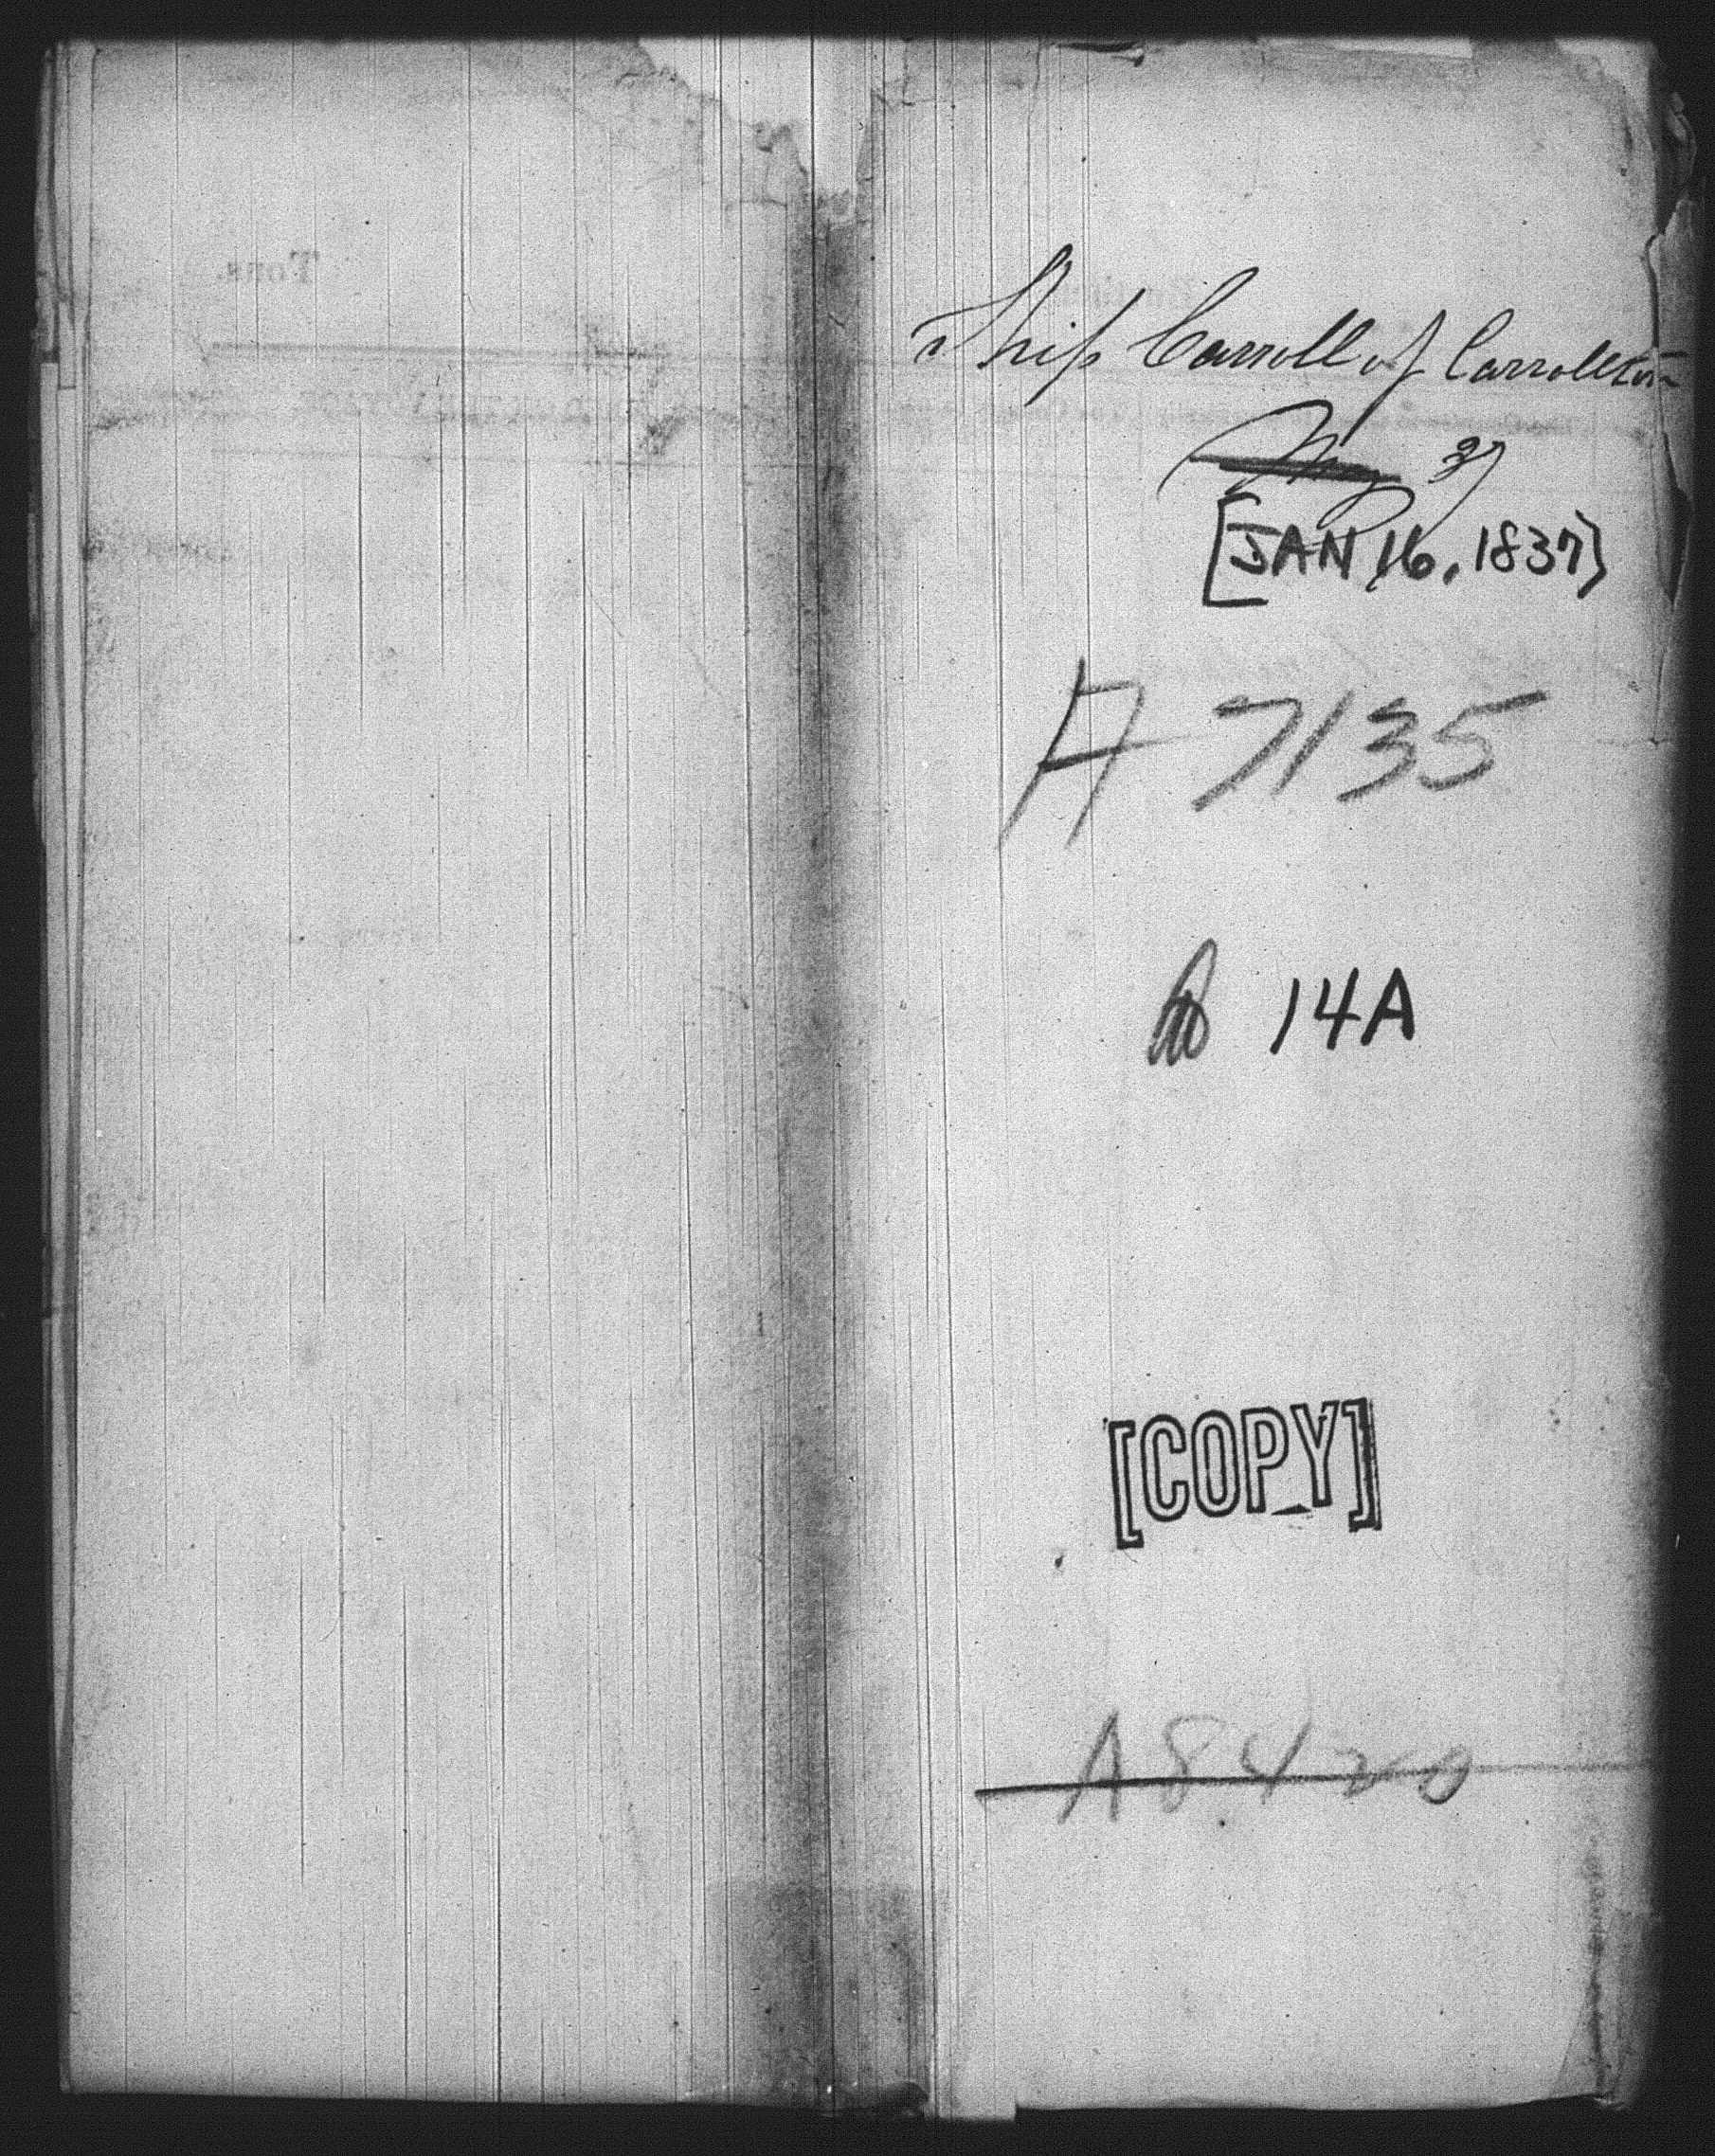 Ship Carroll of Carrollton
May 37
[JAN 16, 1837]
A 7135
14A
[COPY]
A8420
Tons.